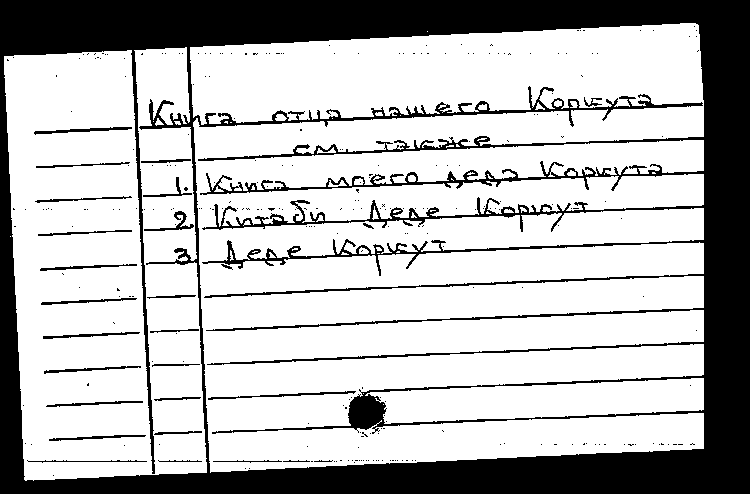 Книга отца нашего Коркута
см. также
1. Книга моего деда Коркута
2. Китаби Деде Коркут
3. Деде Коркут